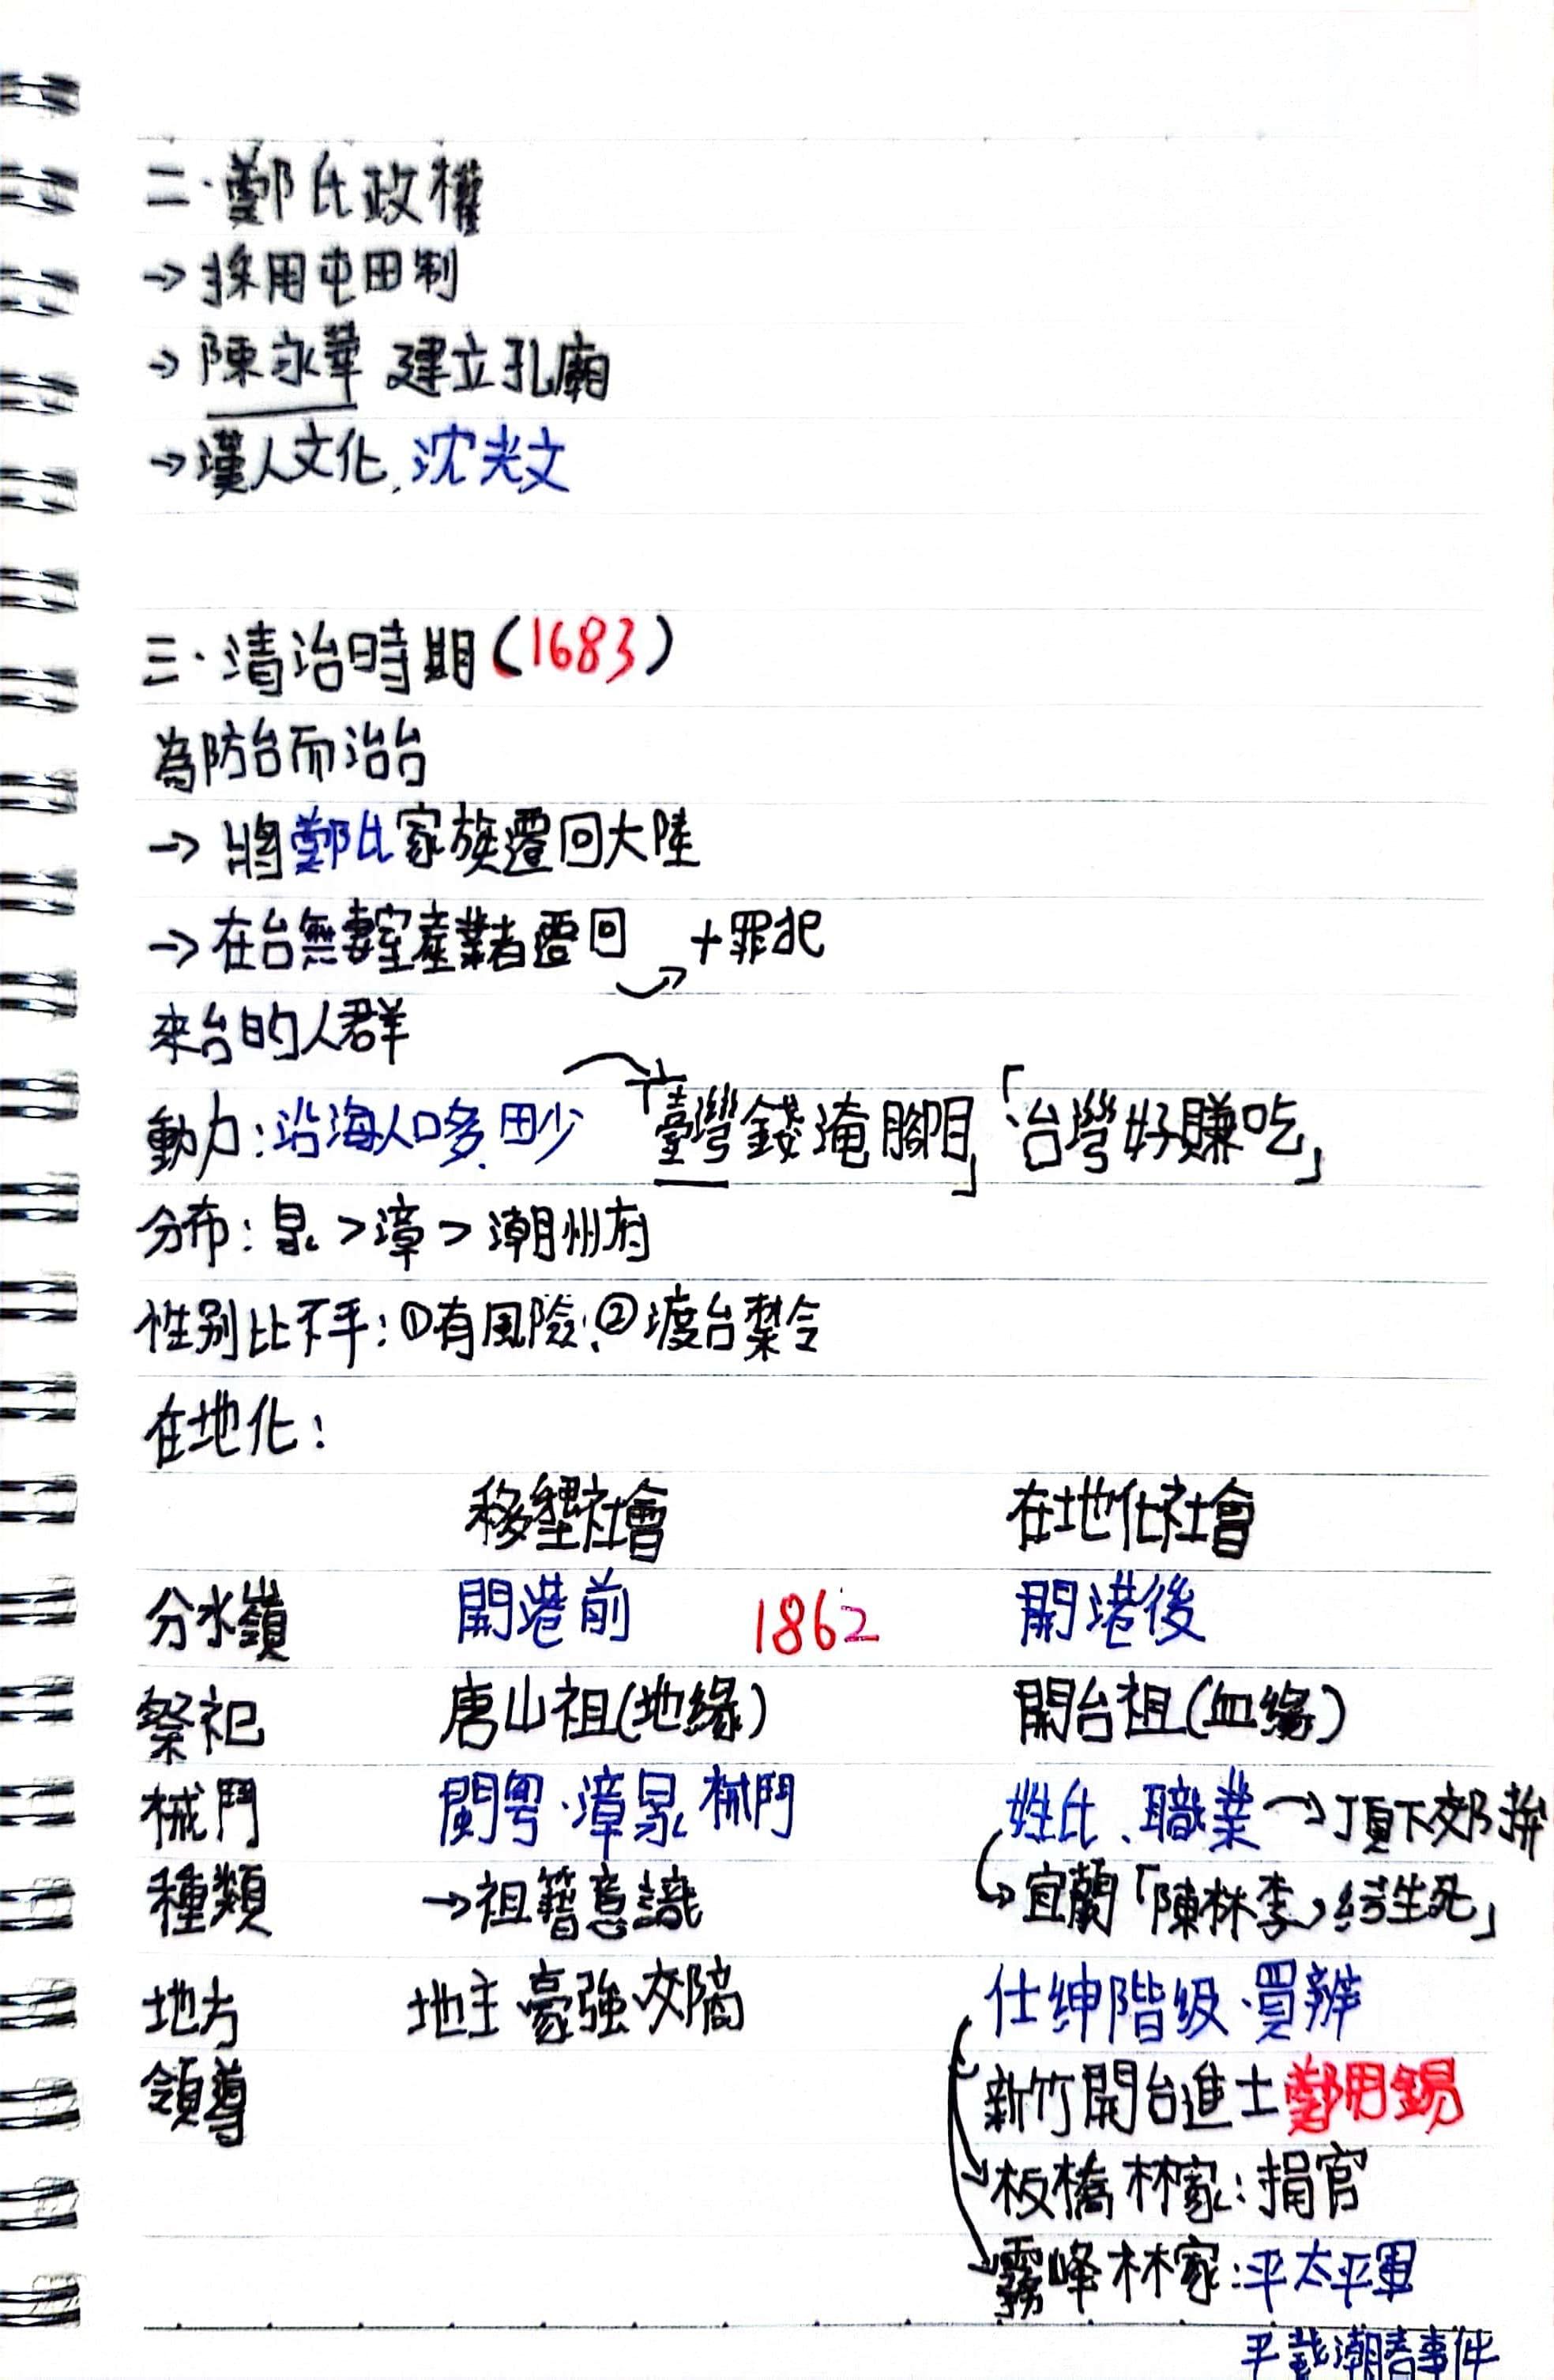 二.鄭氏政權
→採用屯田制
→陳永華 建立孔廟
→漢人文化、沈光文
三.清治時期(1683)
為防台而治台
→將鄭氏家族遷回大陸
→在台無妻室產業者遷回 +罪犯
來台的人群
動力:沿海人口多、田少 「臺灣錢淹腳目」「台灣好賺吃」
分布:泉>漳>潮州府
性別比不平:①有風險、②渡台禁令
在地化:
移墾社會 在地化社會
分水嶺 開港前 1862 開港後
祭祀 唐山祖(地緣) 開台祖(血緣)
械鬥 閩粵、漳泉械鬥 姓氏、職業→頂下郊拚
種類 →祖籍意識 →宜蘭「陳林李,結生死」
地方 地主、豪強、郊商 仕紳階級、買辦
領導 新竹開台進士鄭用錫
板橋林家:捐官
霧峰林家:平太平軍
平戴潮春事件